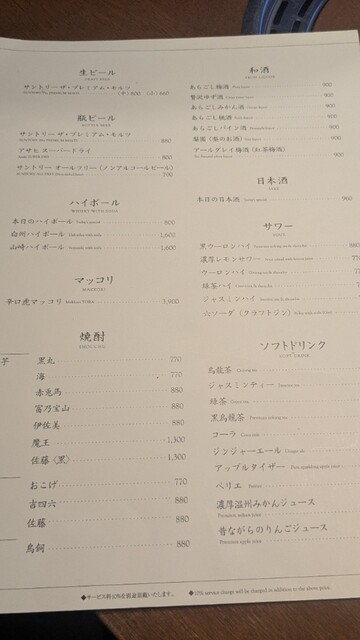 生ビール
DRAFT BEER
サントリー ザ・プレミアム・モルツ
SUNTORY The PREMIUM MALTS
(中) 900 (小) 660
瓶ビール
BOTTLE BEER
サントリー ザ・プレミアム・モルツ
SUNTORY The PREMIUM MALTS 880
アサヒ スーパードライ
Asahi SUPER DRY 800
サントリー オールフリー (ノンアルコールビール)
700
ハイボール
WHISKY WITH SODA
本日のハイボール 800
白州ハイボール 1,600
山崎ハイボール 1,600
マッコリ
MAKKORI
辛口虎マッコリ Makkori TORA 3,900
焼酎
SHOCHU
芋
黒丸 770
海 770
赤兎馬 880
富乃宝山 880
伊佐美 880
魔王 1,300
佐藤〈黒〉 1,300
おこげ 770
吉四六 880
佐藤 880
鳥飼 880
和酒
FRUIT LIQUOR
あらごし梅酒 900
贅沢ゆず酒 900
あらごしみかん酒 900
あらごし桃酒 900
あらごしパイン酒 900
梨園 (梨のお酒) 900
アールグレイ梅酒 (紅茶梅酒) 900
日本酒
SAKE
本日の日本酒 960
サワー
SOUR
黒ウーロンハイ 880
濃厚レモンサワー
ウーロンハイ
緑茶ハイ
ジャスミンハイ
六ソーダ (クラフトジン)
ソフトドリンク
SOFT DRINK
烏龍茶 Oolong tea
ジャスミンティー Jasmine tea
緑茶 Green tea
黒烏龍茶
コーラ Coca-cola
ジンジャーエール Ginger ale
アップルタイザー Pure sparkling apple juice
ペリエ Perrier
濃厚温州みかんジュース
Premium mikan juice
昔ながらのりんごジュース
Premium apple juice
◆サービス料10%を別途頂戴いたします。 ◆10% service charge will be charged in addition to the above price.